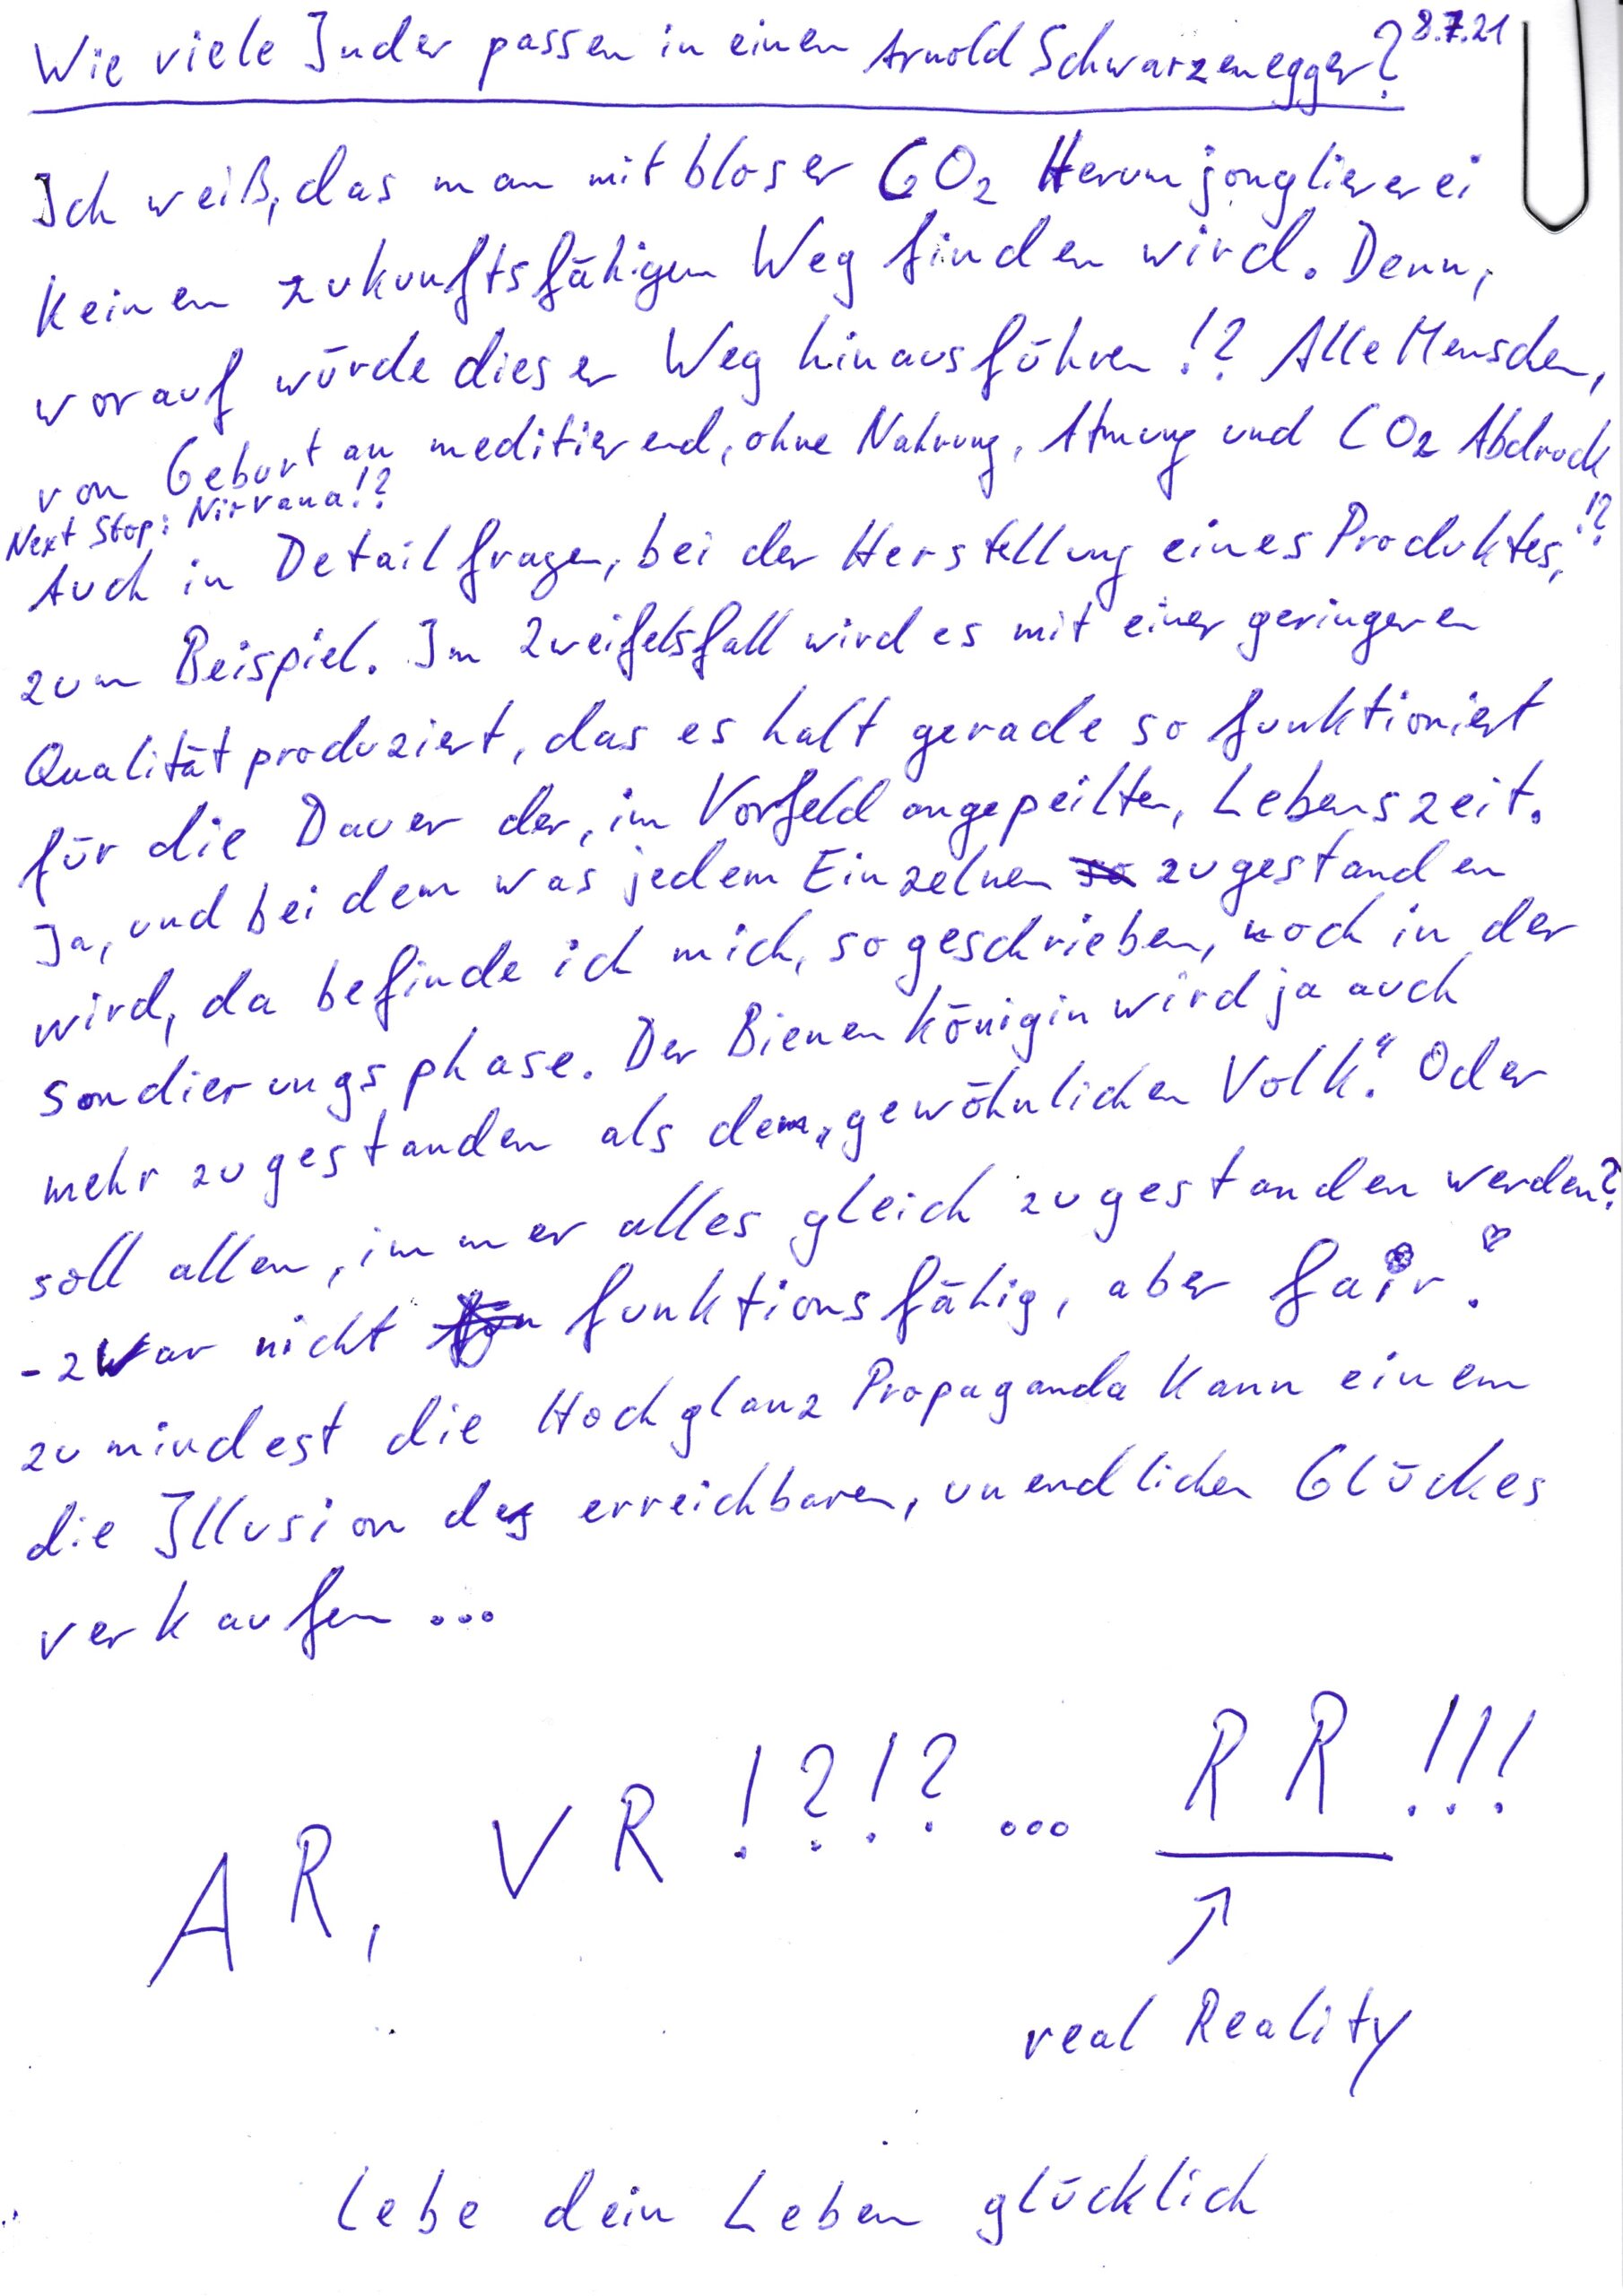 8.7.21
Wie viele Inder passen in einen Arnold Schwarzenegger?
Ich weiß, das man mit bloser CO2 Herumjongliererei
keinen zukunftsfähigen Weg finden wird. Denn,
worauf würde dieser Weg hinausführen!? Alle Menschen,
von Geburt an meditierend, ohne Nahrung, Atmung und CO2 Abdruck!?
Next Stop: Nirvana!?
Auch in Detailfragen, bei der Herstellung eines Produktes,
zum Beispiel. Im Zweifelsfall wird es mit einer geringeren
Qualität produziert, das es halt gerade so funktioniert
für die Dauer der, im Vorfeld angepeilten, Lebenszeit.
Ja, und bei dem was jedem Einzelnen so zugestanden
wird, da befinde ich mich, so geschrieben, noch in der
sondierungsphase. Der Bienenkönigin wird ja auch
mehr zugestanden als dem „gewöhnlichen Volk“. Oder
soll allen, immer alles gleich zugestanden werden?
- zwar nicht funktionsfähig, aber fair.
zumindest die Hochglanz Propaganda kann einem
die Illusion des erreichbaren, unendlichen Glückes
verkaufen ...
AR, VR !?!? ... RR !!!
real Reality
Lebe dein Leben glücklich